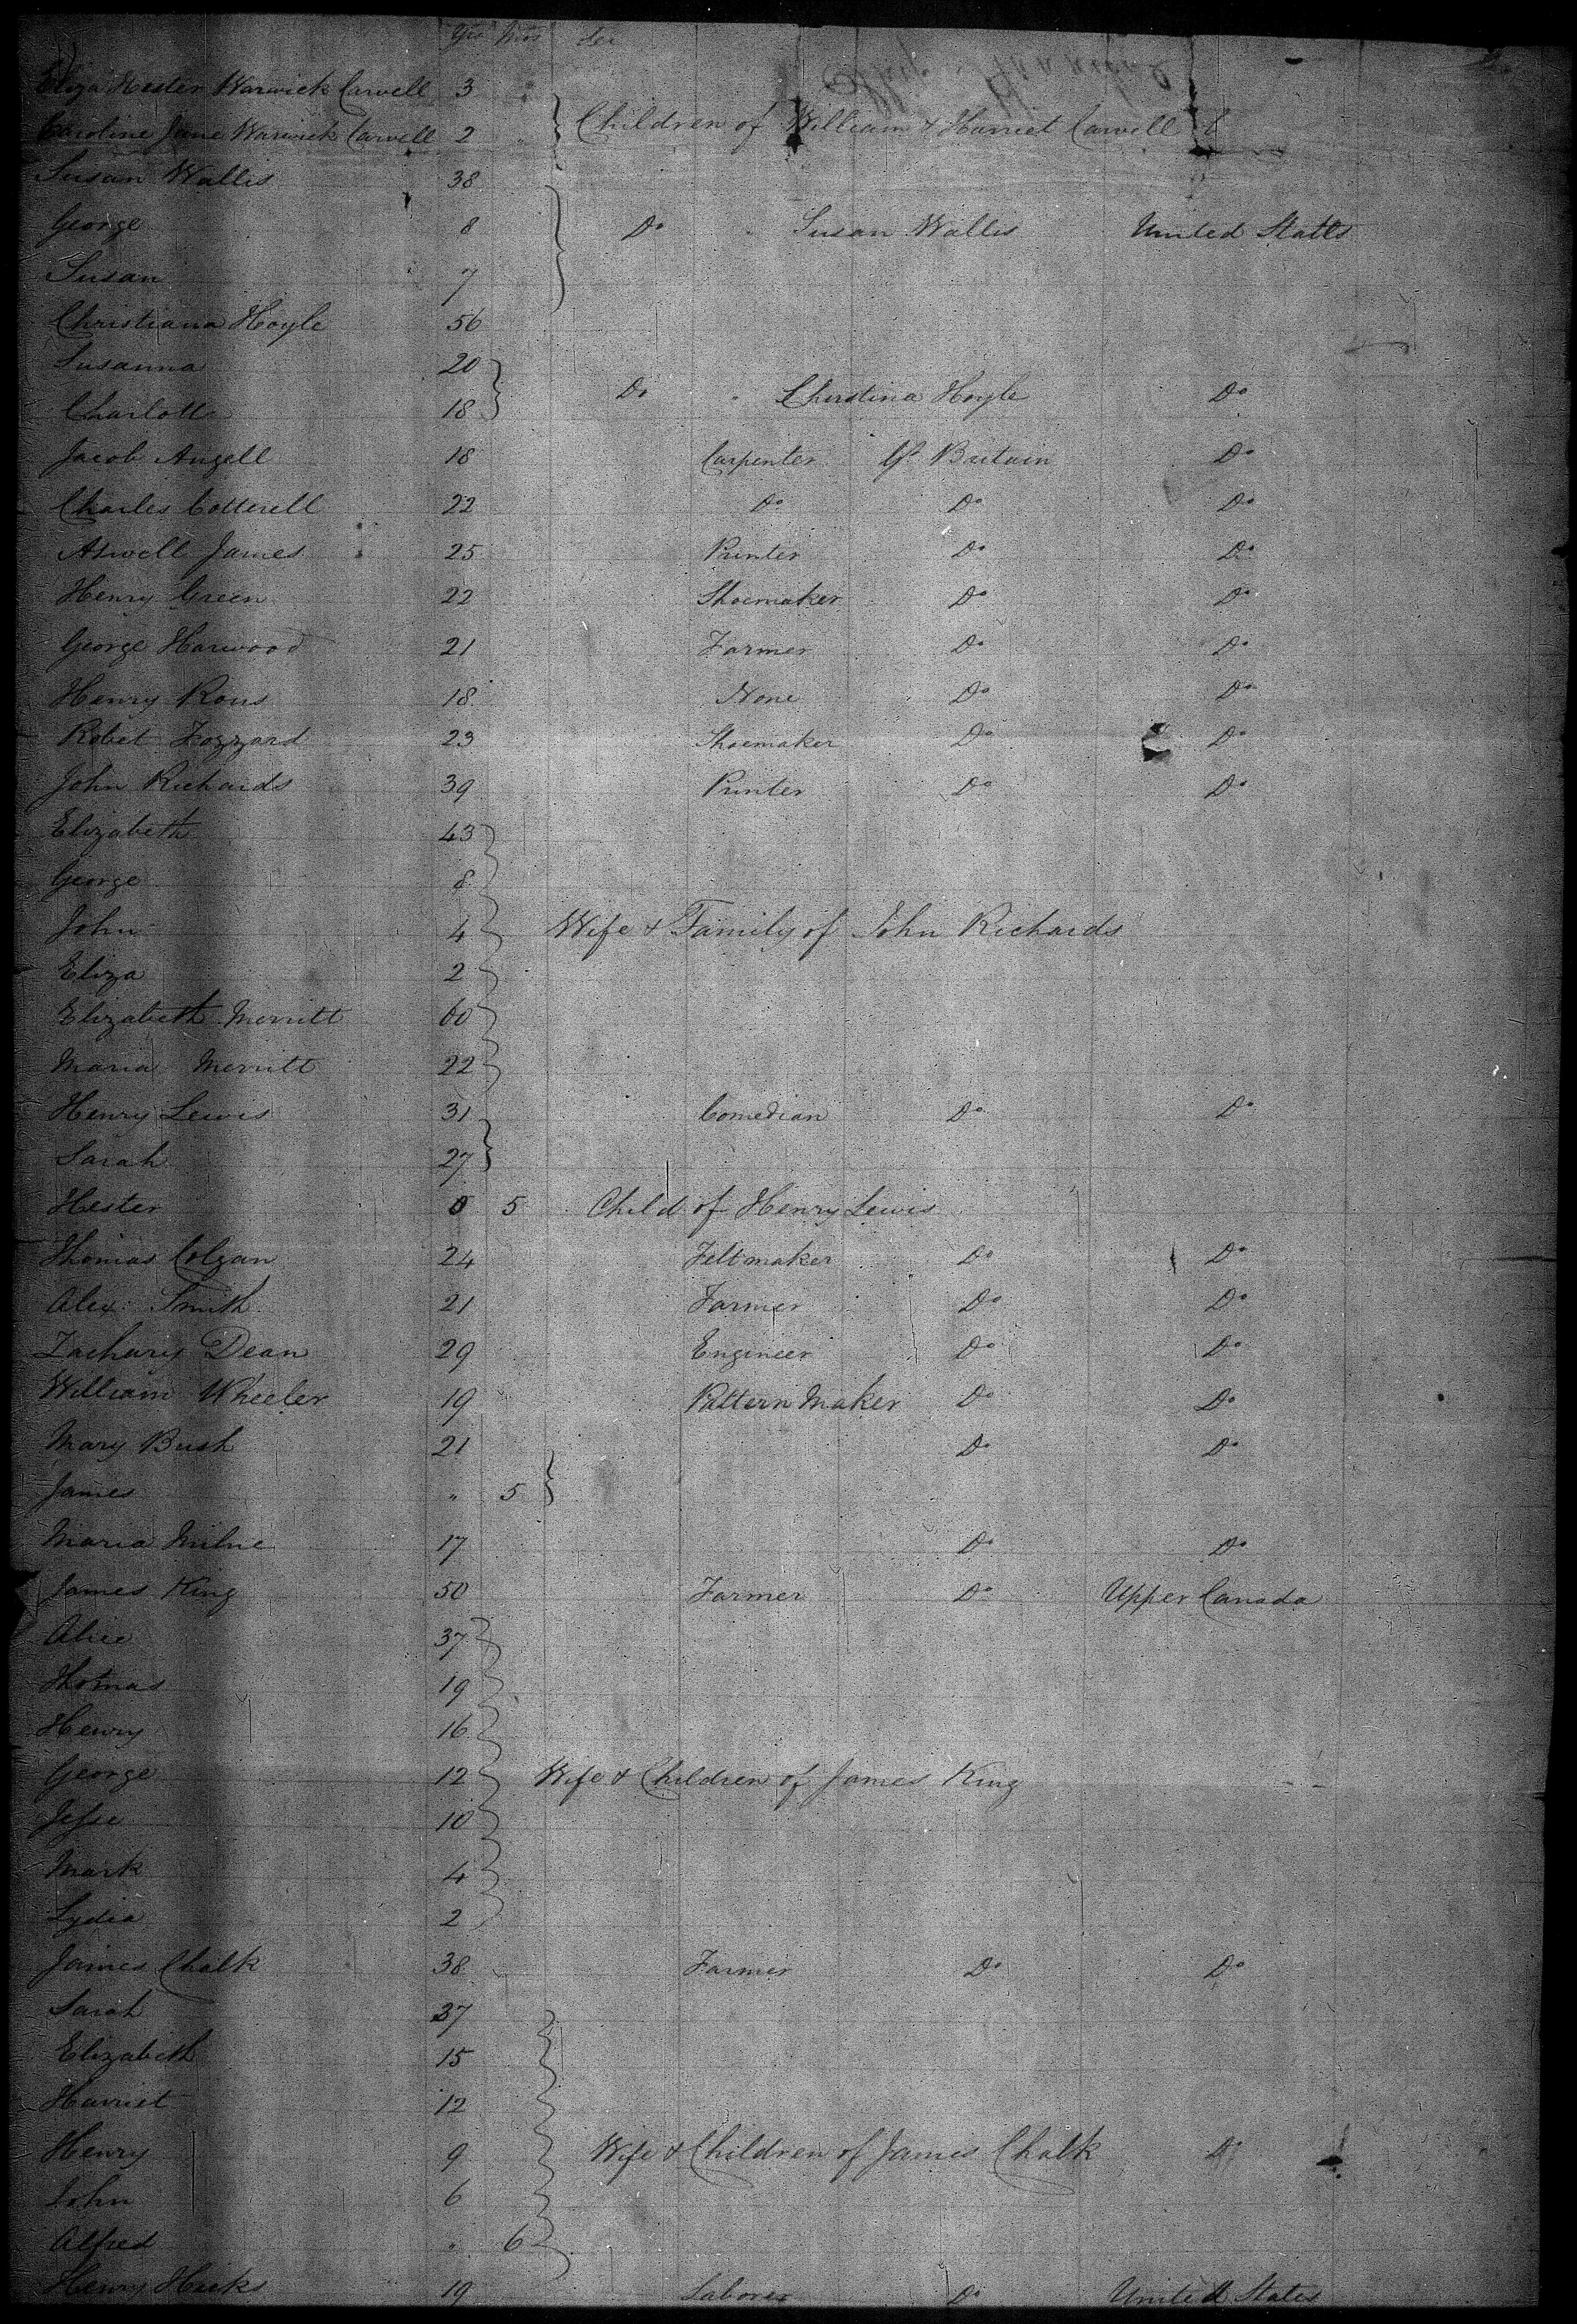 Yrs Mos Sex
Eliza Hester Warwick Carvell 3
Children of William & Harriet Carvell
Caroline Jane Warwick Carvell 2 "
Susan Wallis 38
George 8 Do " Susan Wallis United States
Susan 7
Christiana Hoyle 56
Susanna 20
Do " Christina Hoyle Do
Charlotte 18
Jacob Angell 18 Carpenter Gt Britain Do
Charles Cotterell 22 Do Do Do
Atwell James 25 Printer Do Do
Henry Green 22 Shoemaker Do Do
George Harwood 21 Farmer Do Do
Henry Rous 18 None Do Do
Robet Fozzard 23 Shoemaker Do Do
John Richards 39 Printer Do Do
Elizabeth 43
George 8
John 4 Wife & Family of John Richards
Eliza 2
Elizabeth Merritt 60
Maria Merritt 22
Henry Lewis 31 Comedian Do Do
Sarah 27
Hester 0 5 Child of Henry Lewis
Thomas Colgan 24 Feltmaker Do Do
Alex: Smith 21 Farmer Do Do
Zachary Dean 29 Engineer Do Do
William Wheeler 19 Pattern Maker Do Do
Mary Bush 21 Do Do
James " 5
Maria Milne 17 Do Do
James King 50 Farmer Do Upper Canada
Alice 37
Thomas 19
Henry 16
George 12 Wife & Children of James King
Jesse 10
Mark 4
Lydia 2
James Chalk 38 Farmer Do Do
Sarah 37
Elizabeth 15
Harriet 12
Henry 9 Wife & Children of James Chalk Do
John 6
Alfred " 6
Henry Hicks 19 Laborer Do United States